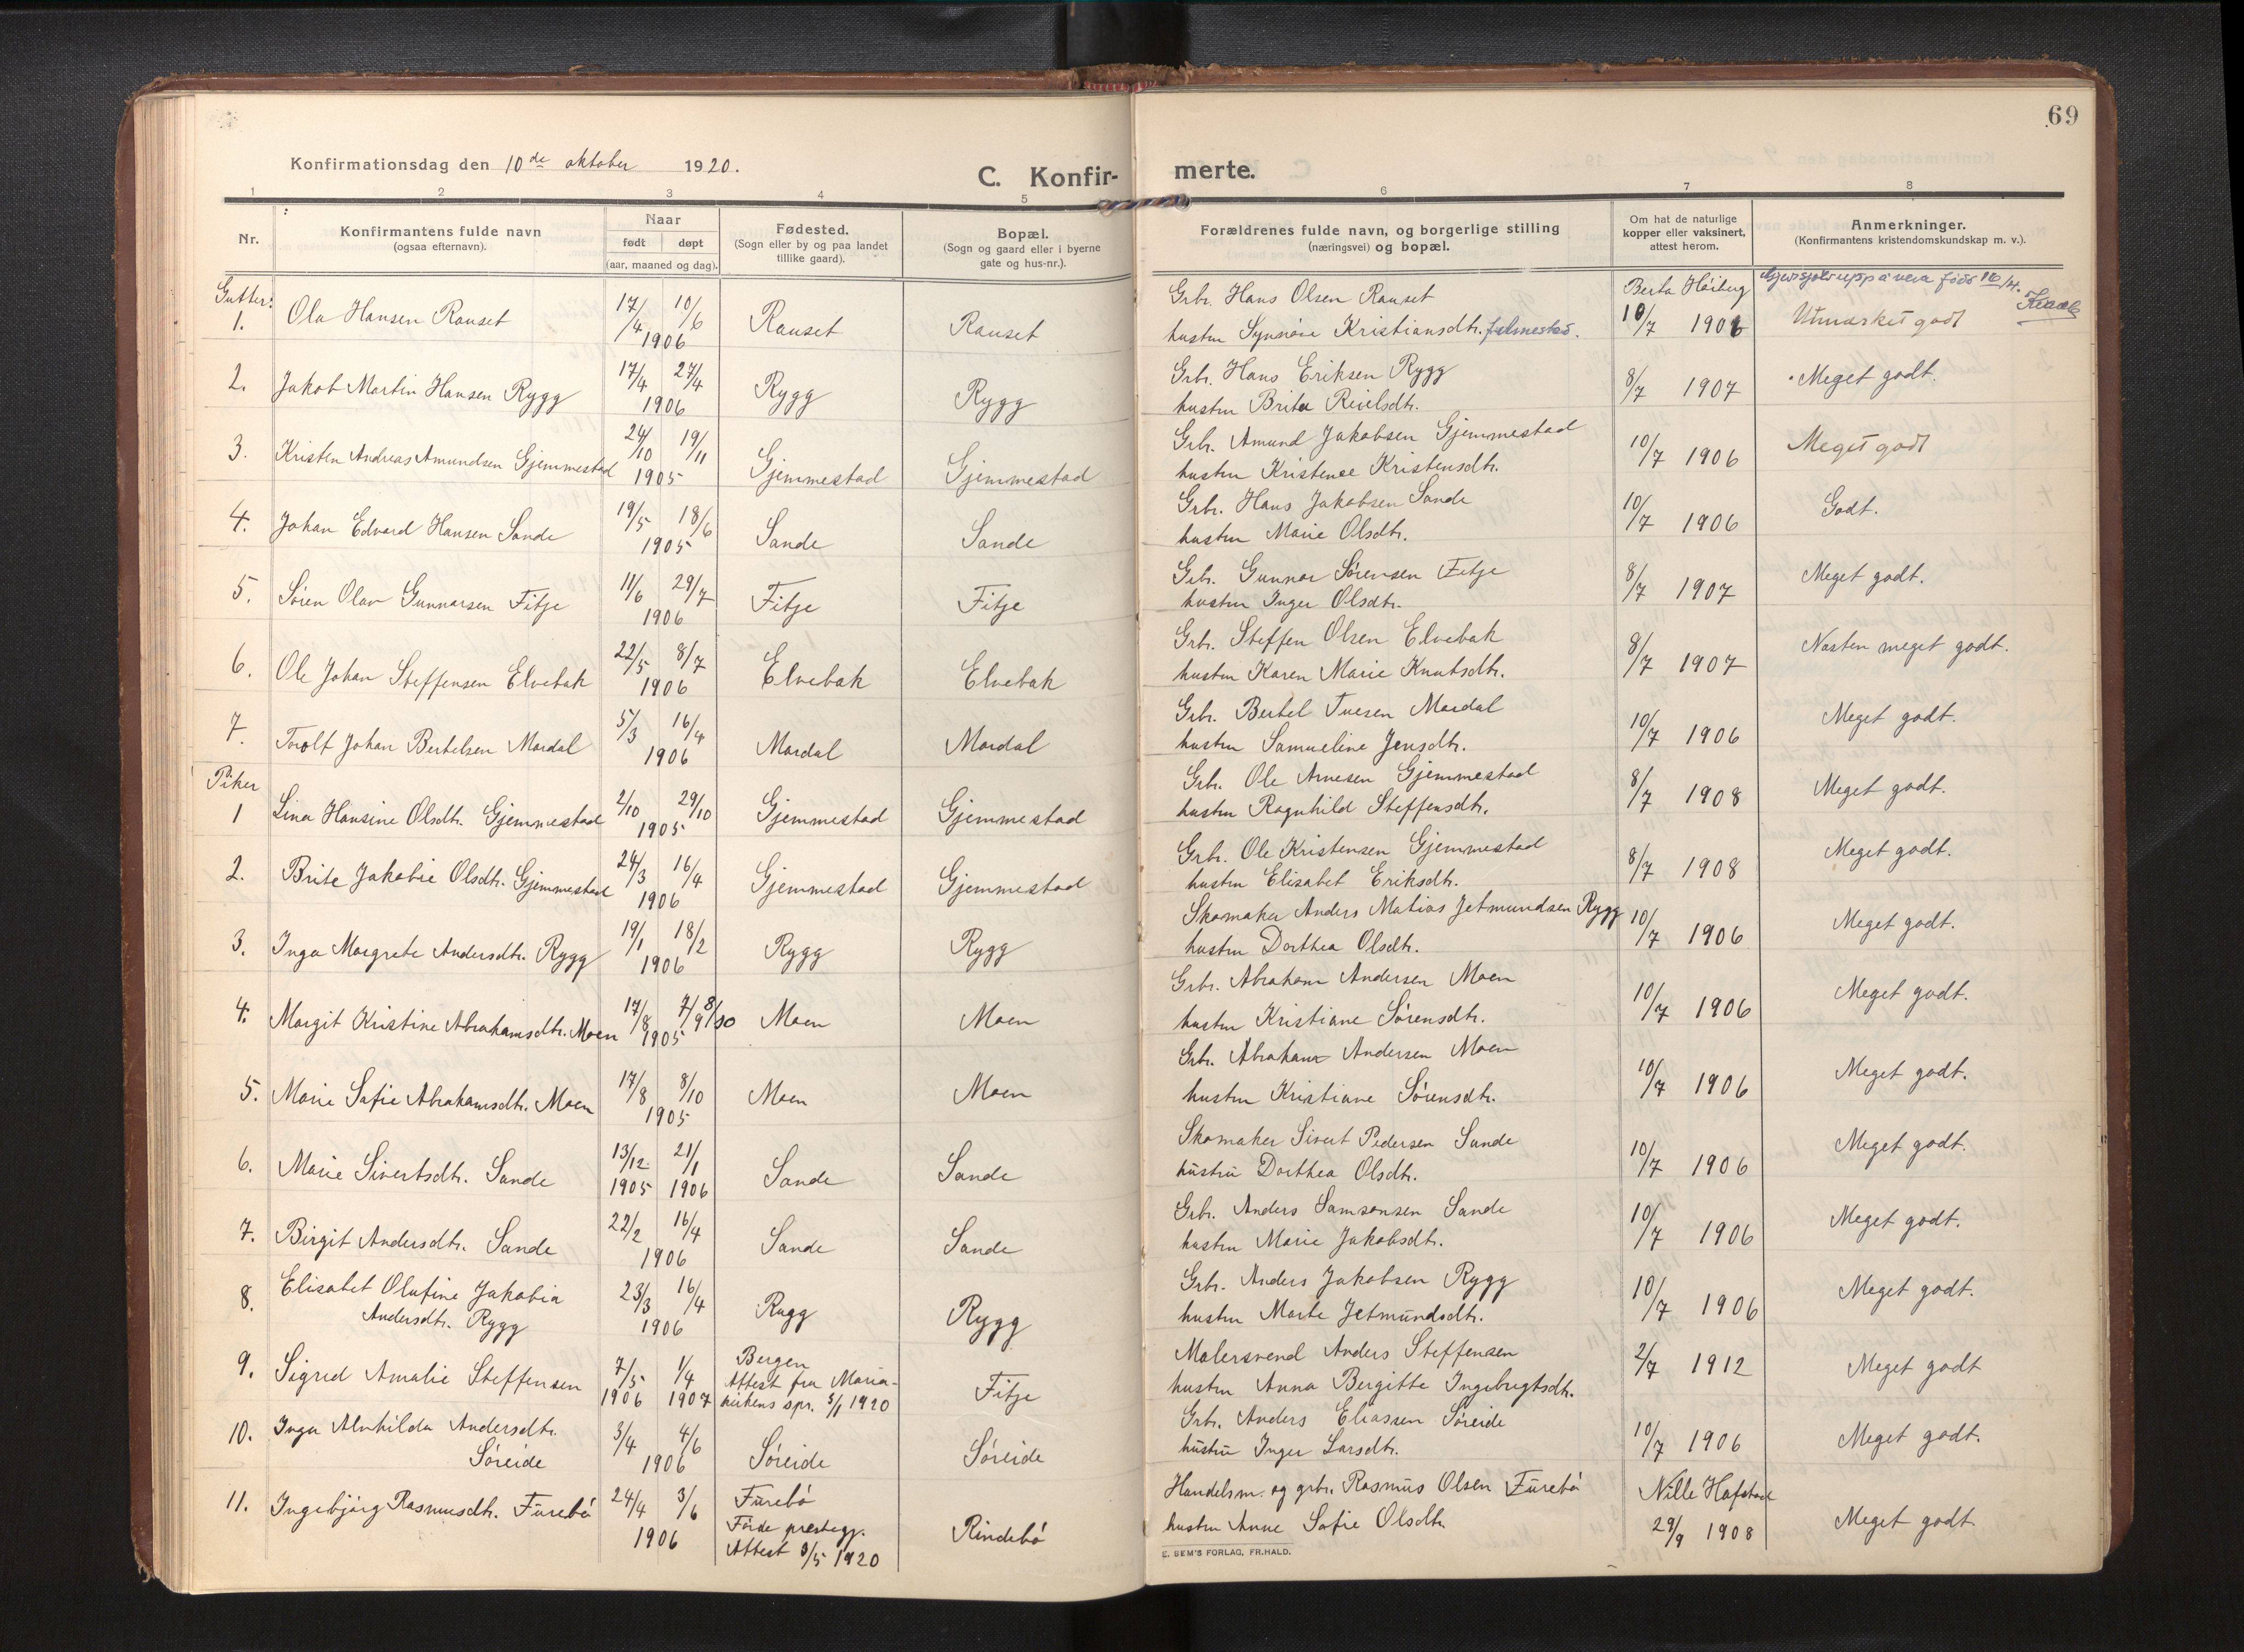 69
Konfirmationsdag den 10de oktober 1920.
C. Konfir- merte.
1 2 3 4 5 6 7 8
Nr.
Konfirmantens fulde navn
(ogsaa efternavn).
Naar
født døpt
(aar, maaned og dag).
Fødested.
(Sogn eller by og paa landet
tillike gaard).
Bopæl.
(Sogn og gaard eller i byerne
gate og hus-nr.).
Forældrenes fulde navn, og borgerlige stilling
(næringsvei) og bopæl.
Om hat de naturlige
kopper eller vaksinert,
attest herom.
Anmerkninger.
(Konfirmantens kristendomskundskap m. v.).
Gutter:
1. Ola Hansen Rauset 17/4 10/6 Rauset Rauset Grb. Hans Olsen Rauset Berta Höiberg
1906 hustru Synnöve Kristiansdtr. 10/7 1906 Utmarket godt
2. Jakob Martin Hansen Rygg 17/4 27/4 Rygg Rygg Grb. Hans Eriksen Rygg 8/7 1907 Meget godt.
1906 hustru Brita Reielsdtr.
3. Kristen Andreas Amundsen Gjemmestad 24/10 19/11 Gjemmestad Gjemmestad Grb. Amund Jakobsen Gjemmestad 10/7 1906 Meget godt
1905 hustru Kristense Kristensdtr.
4. Johan Edvard Hansen Sande 19/5 18/6 Sande Sande Grb. Hans Jakobsen Sande 10/7 1906 Godt.
1905 hustru Marie Olsdtr.
5. Sören Olav Gunnarsen Fitje 11/6 29/7 Fitje Fitje Grb. Gunnar Sörensen Fitje 8/7 1907 Meget godt.
1906 hustru Inger Olsdtr.
6. Ole Johan Steffensen Elvebak 22/5 8/7 Elvebak Elvebak Grb. Steffen Olsen Elvebak 8/7 1907 Nasten meget godt.
1906 hustru Karen Marie Knutsdtr.
7. Torolf Johan Bertelsen Mardal 5/3 16/4 Mardal Mardal Grb. Bertel Tuesen Mardal 10/7 1906 Meget godt.
1906 hustru Samueline Jensdtr.
Piker
1 Lina Hansine Olsdtr. Gjemmestad 2/10 29/10 Gjemmestad Gjemmestad Grb. Ole Arnesen Gjemmestad 8/7 1908 Meget godt.
1905 hustru Ragnhild Steffensdtr.
2. Brite Jakobie Olsdtr. Gjemmestad 24/3 16/4 Gjemmestad Gjemmestad Grb. Ole Kristensen Gjemmestad 8/7 1908 Meget godt.
1906 hustru Elisabet Eriksdtr.
3. Inga Margrete Andersdtr. Rygg 19/1 18/2 Rygg Rygg Skomaker Anders Matias Jetmundsen Rygg 10/7 1906 Meget godt.
1906 hustru Dorthea Olsdtr.
4. Margit Kristine Abrahamsdtr. Moen 17/8 7/9 8/10 Moen Moen Grb. Abraham Andersen Moen 10/7 1906 Meget godt.
1905 hustru Kristiane Sörensdtr.
5. Marie Sofie Abrahamsdtr. Moen 17/8 8/10 Moen Moen Grb. Abraham Andersen Moen 10/7 1906 Meget godt.
1905 hustru Kristiane Sörensdtr.
6. Marie Sivertsdtr. Sande 13/12 21/1 Sande Sande Skomaker Sivert Pedersen Sande 10/7 1906 Meget godt.
1905 1906 hustru Dorthea Olsdtr.
7. Birgit Andersdtr. Sande 22/2 16/4 Sande Sande Grb. Anders Samsonsen Sande 10/7 1906 Meget godt.
1906 hustru Marie Jakobsdtr.
8. Elisabet Olufine Jakobia 23/3 16/4 Rugg Rygg Grb. Anders Jakobsen Rygg 10/7 1906 Meget godt.
Andersdtr. Rygg 1906 hustru Marte Jetmundsdtr.
9. Sigrid Amalie Steffensen 7/5 1/4 Bergen Fitje Malersvend Anders Steffensen 2/7 1912 Meget godt
1906 1907 Attest fra Maria-
kirkens spr. 3/1 1920 hustru Anna Bergitte Ingebrigtsdtr.
10. Inga Alvhilda Andersdtr. 3/4 4/6 Söreide Söreide Grb. Anders Eliassen Söreide 10/7 1906 Meget godt.
Söreide 1906 hustru Inger Larsdtr.
11. Ingebjörg Rasmusdtr. Furebö 24/4 3/6 Furebö Rindebö Handelsm. og grbr. Rasmus Olsen Furebö Nille Hafstad
1906 Förde prestegj. hustru Anne Sofie Olsdtr. 29/9 1908 Meget godt.
Attest 3/5 1920
E. SEM'S FORLAG, FR.HALD.